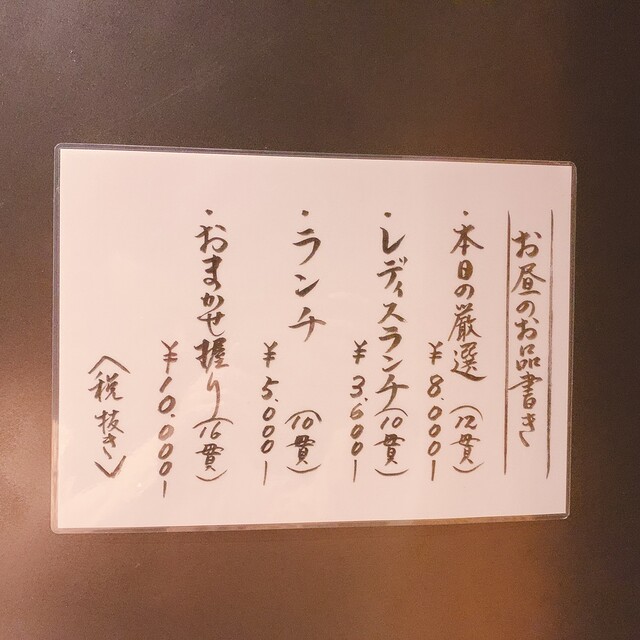 お昼のお品書き
・本日の厳選(12貫)
¥8.000-
・レディスランチ(10貫)
¥3.600-
・ランチ(10貫)
¥5.000-
・おまかせ握り(16貫)
¥10.000-
〈税抜き〉